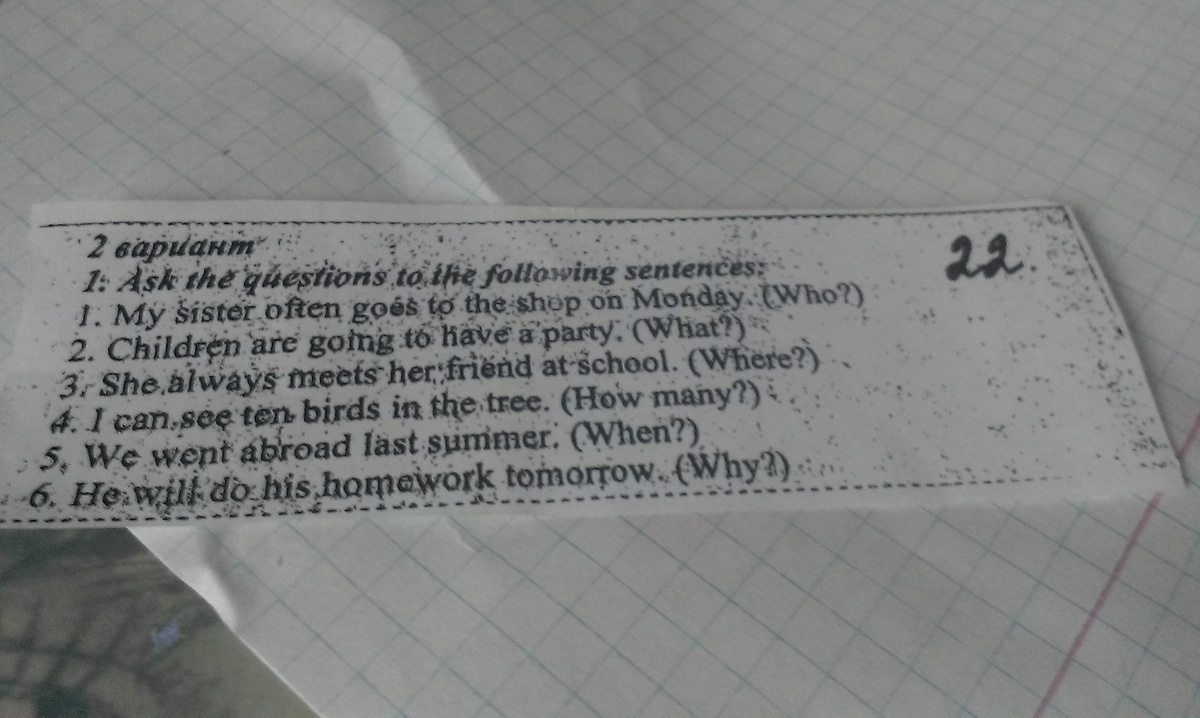 2 вариант
22.
1: Ask the questions to the following sentences:
1. My sister often goes to the shop on Monday. (Who?)
2. Children are going to have a party. (What?)
3. She always meets her friend at school. (Where?)
4. I can see ten birds in the tree. (How many?)
5. We went abroad last summer. (When?)
6. He will do his homework tomorrow. (Why?)